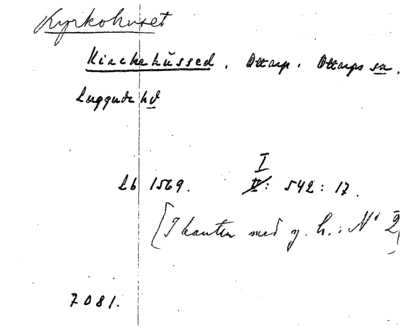 Kyrkohuset
Kirckehüssed. Ottarp. Ottarps sn.
Luggude hd
Lb 1569. I: 542: 17.
[I kanten med y. h.: No 2,
7081.